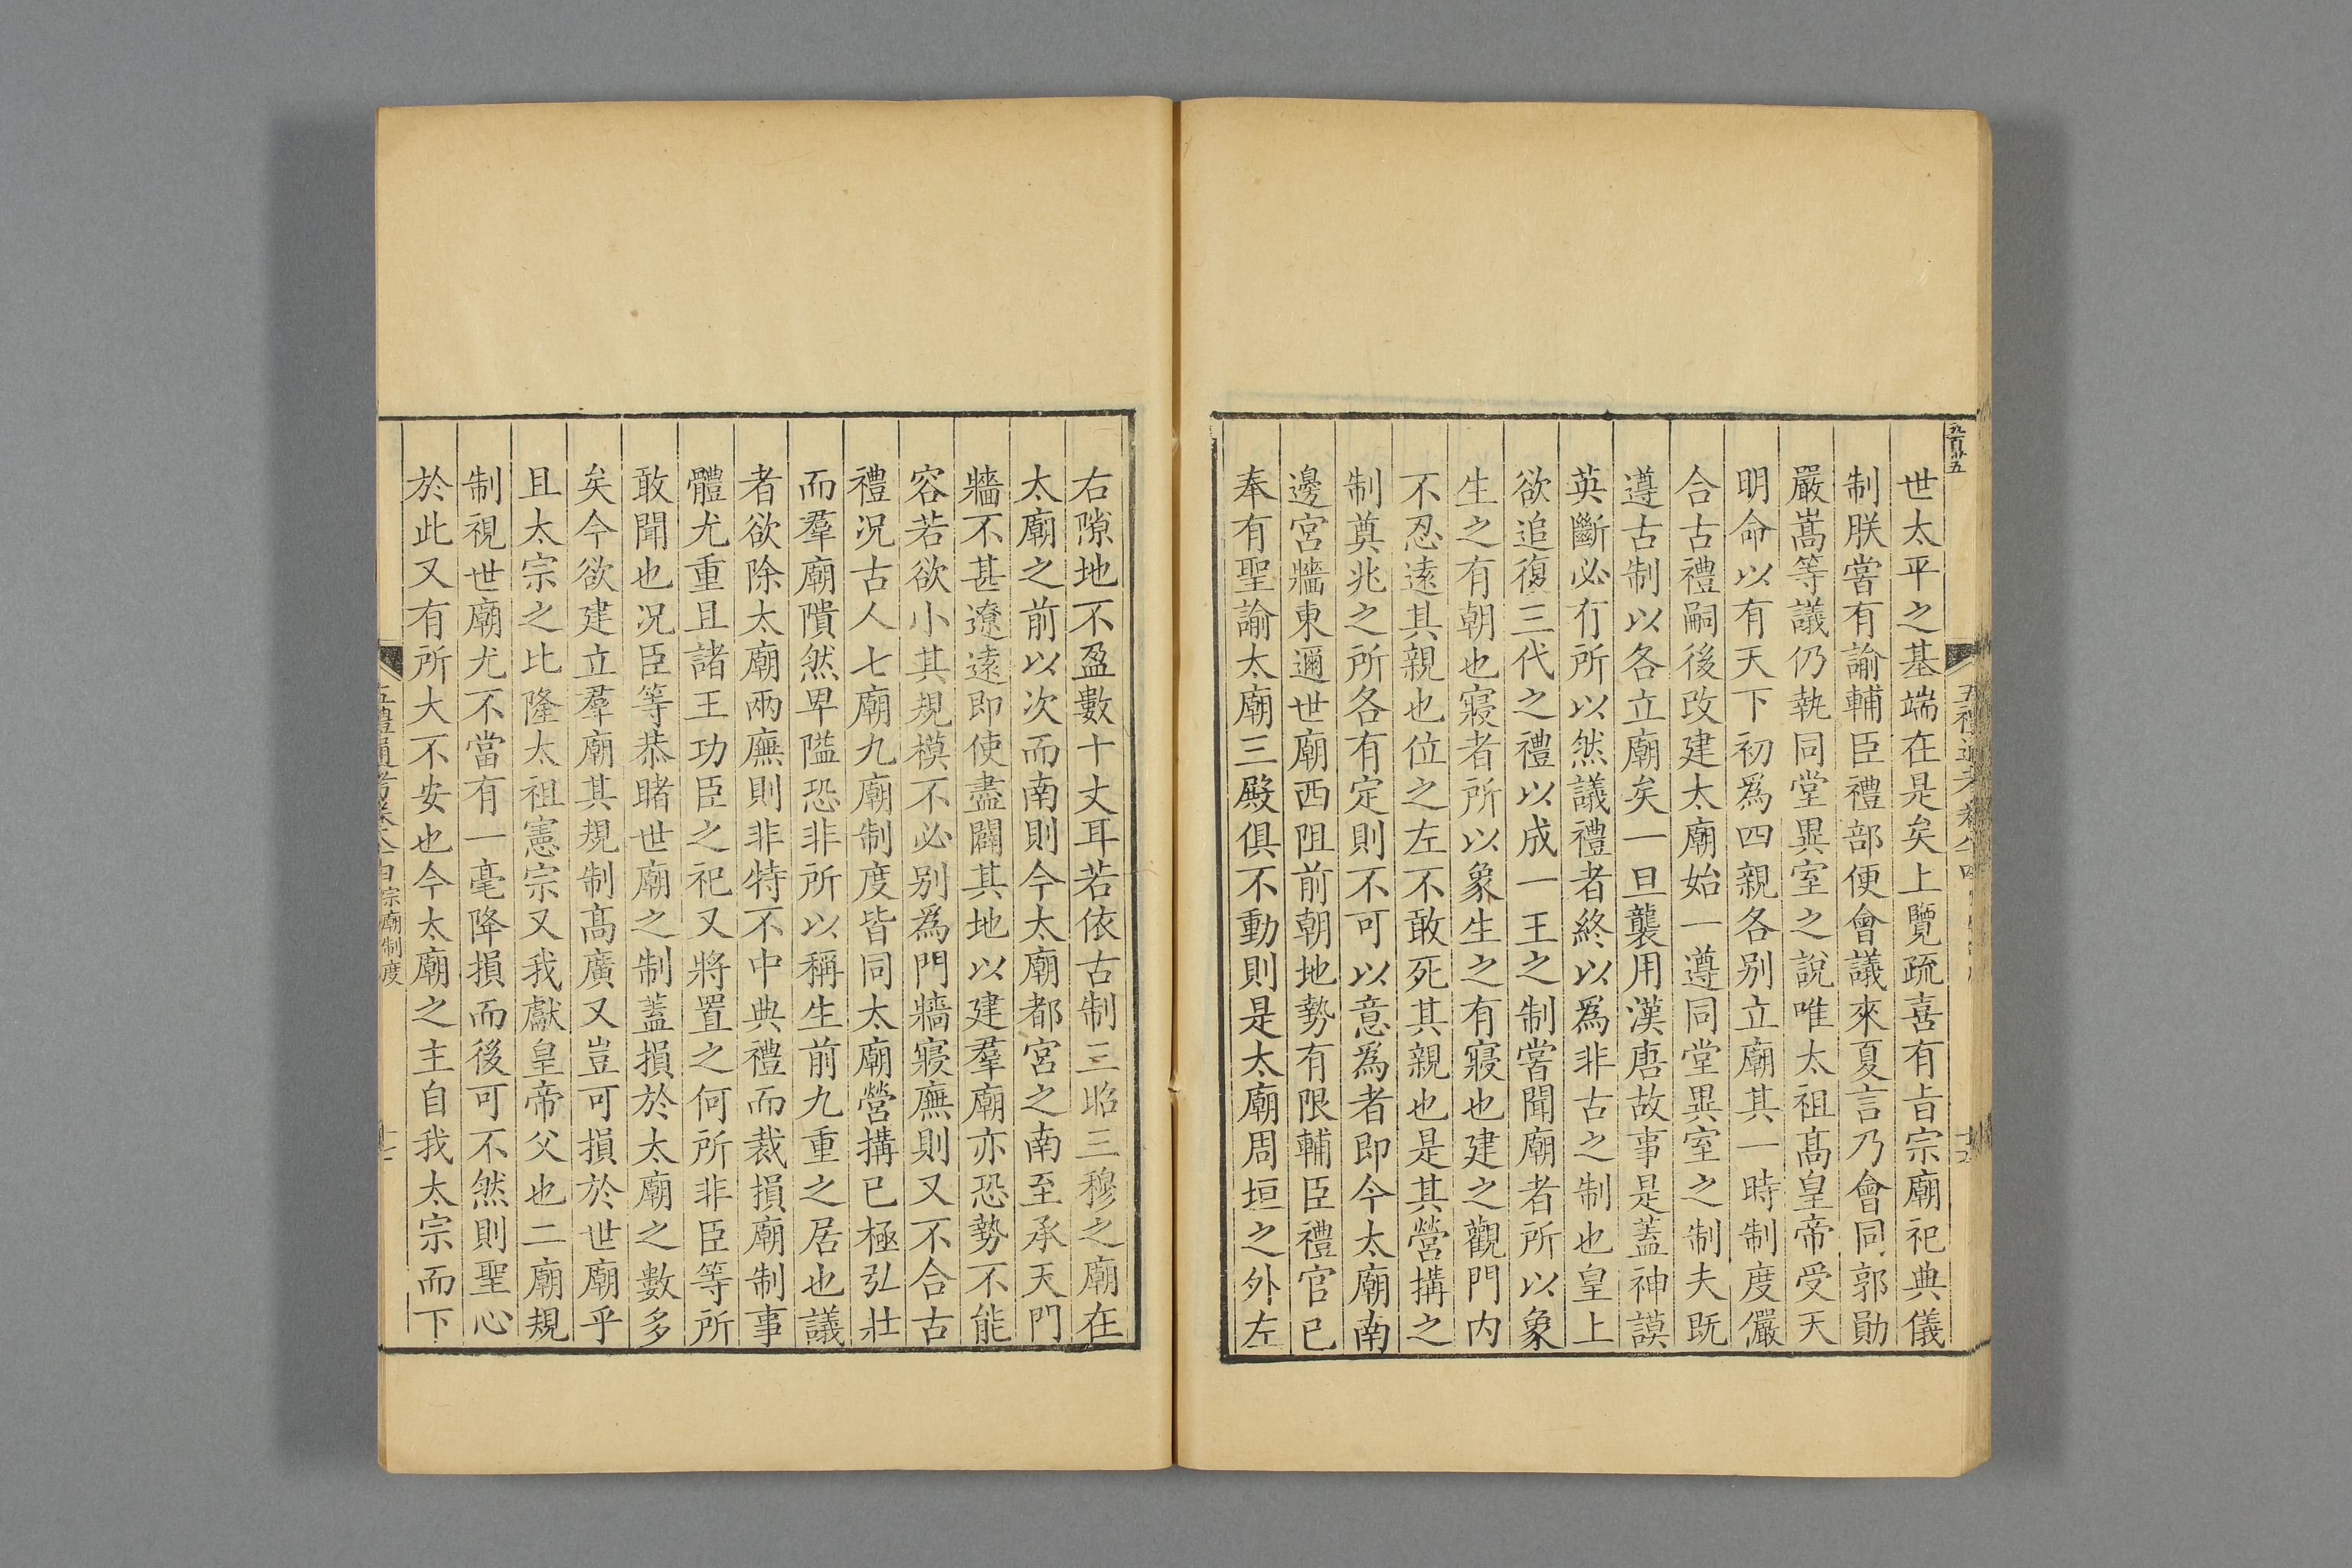 世太平之基端在是矣上覽疏喜有㫖宗廟祀典儀
制朕嘗有諭輔臣禮部便會議來夏言乃會同郭勛
嚴嵩等議仍執同堂異室之說唯太祖髙皇帝受天
明命以有天下初爲四親各别立廟其一時制度儼
合古禮嗣後改建太廟始一遵同堂異室之制夫既
遵古制以各立廟矣一旦襲用漢唐故事是蓋神謨
英斷必有所以然議禮者終以爲非古之制也皇上
欲追復三代之禮以成一王之制嘗聞廟者所以象
生之有朝也寢者所以象生之有寢也建之觀門内
不忍逺其親也位之左不敢死其親也是其營搆之
制奠兆之所各有定則不可以意爲者即今太廟南
邊宮牆東邇世廟西阻前朝地勢有限輔臣禮官已
奉有聖諭太廟三殿俱不動則是太廟周垣之外左
右隙地不盈數十丈耳若依古制三昭三穆之廟在
太廟之前以次而南則今太廟都宮之南至承天門
牆不甚遼逺即使盡闢其地以建羣廟亦恐勢不能
容若欲小其規模不必别爲門牆寢廡則又不合古
禮况古人七廟九廟制度皆同太廟營搆已極弘壯
而羣廟隤然卑隘恐非所以稱生前九重之居也議
者欲除太廟兩廡則非特不中典禮而裁損廟制事
體尤重且諸王功臣之祀又將置之何所非臣等所
敢聞也况臣等恭睹世廟之制蓋損於太廟之數多
矣今欲建立羣廟其規制髙廣又豈可損於世廟乎
且太宗之比隆太祖憲宗又我獻皇帝父也二廟規
制視世廟尤不當有一毫降損而後可不然則聖心
於此又有所大不安也今太廟之主自我太宗而下
宗廟制度